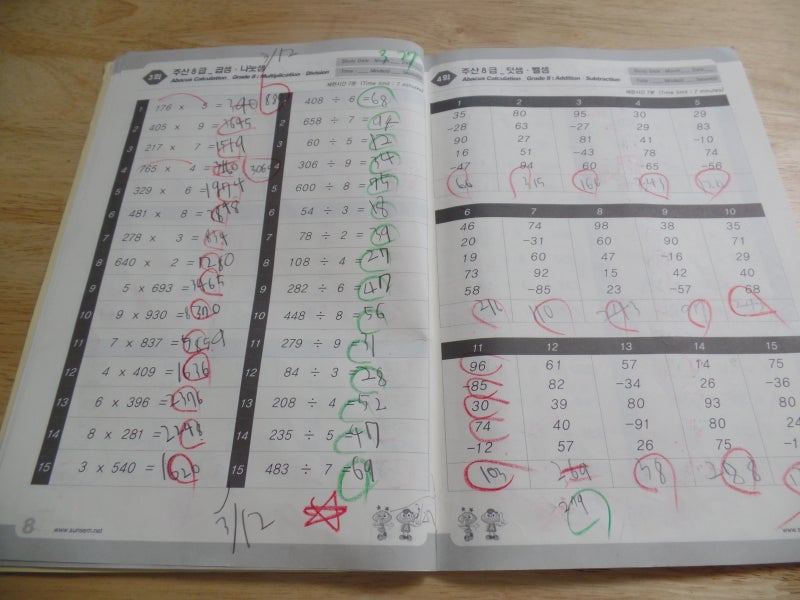 3/12
3 27
3회 주산 8급 _ 곱셈 · 나눗셈
Abacus Calculation _ Grade 8 : Multiplication · Division
제한시간 7분 (Time limit : 7 minutes)
1 176 × 8 =
2 405 × 9 = 3645
3 217 × 7 = 1519
4 765 × 4 = 3060
5 329 × 6 = 1974
6 481 × 8 =
7 278 × 3 = 834
8 640 × 2 = 1280
9 5 × 693 = 3465
10 9 × 930 = 8370
11 7 × 837 = 5859
12 4 × 409 = 1636
13 6 × 396 = 2376
14 8 × 281 = 2248
15 3 × 540 = 1620
1 408 ÷ 6 = 68
2 658 ÷ 7 = 94
3 60 ÷ 5 = 12
4 306 ÷ 9 = 34
5 600 ÷ 8 = 75
6 54 ÷ 3 = 18
7 78 ÷ 2 = 39
8 108 ÷ 4 = 27
9 282 ÷ 6 = 47
10 448 ÷ 8 = 56
11 279 ÷ 9 = 31
12 84 ÷ 3 = 28
13 208 ÷ 4 = 52
14 235 ÷ 5 = 47
15 483 ÷ 7 = 69
3/12
8 www.sunsem.net
4회 주산 8급 _ 덧셈 · 뺄셈
Abacus Calculation _ Grade 8 : Addition · Subtraction
제한시간 7분 (Time limit : 7 minutes)
1 2 3 4 5
35 80 95 30 29
-28 63 -27 29 83
90 27 81 41 -10
16 51 -43 78 74
-47 94 60 65 -56
66 315 166 243 120
6 7 8 9 10
46 74 98 38 35
20 -31 60 90 71
19 60 47 -16 29
73 92 15 42 40
58 -85 23 -57 68
216 110 243 97 243
11 12 13 14 15
96 61 57 14 75
-85 82 -34 26 -36
30 39 80 93 80
74 40 -91 80 24
-12 57 26 75
103 38 288
279